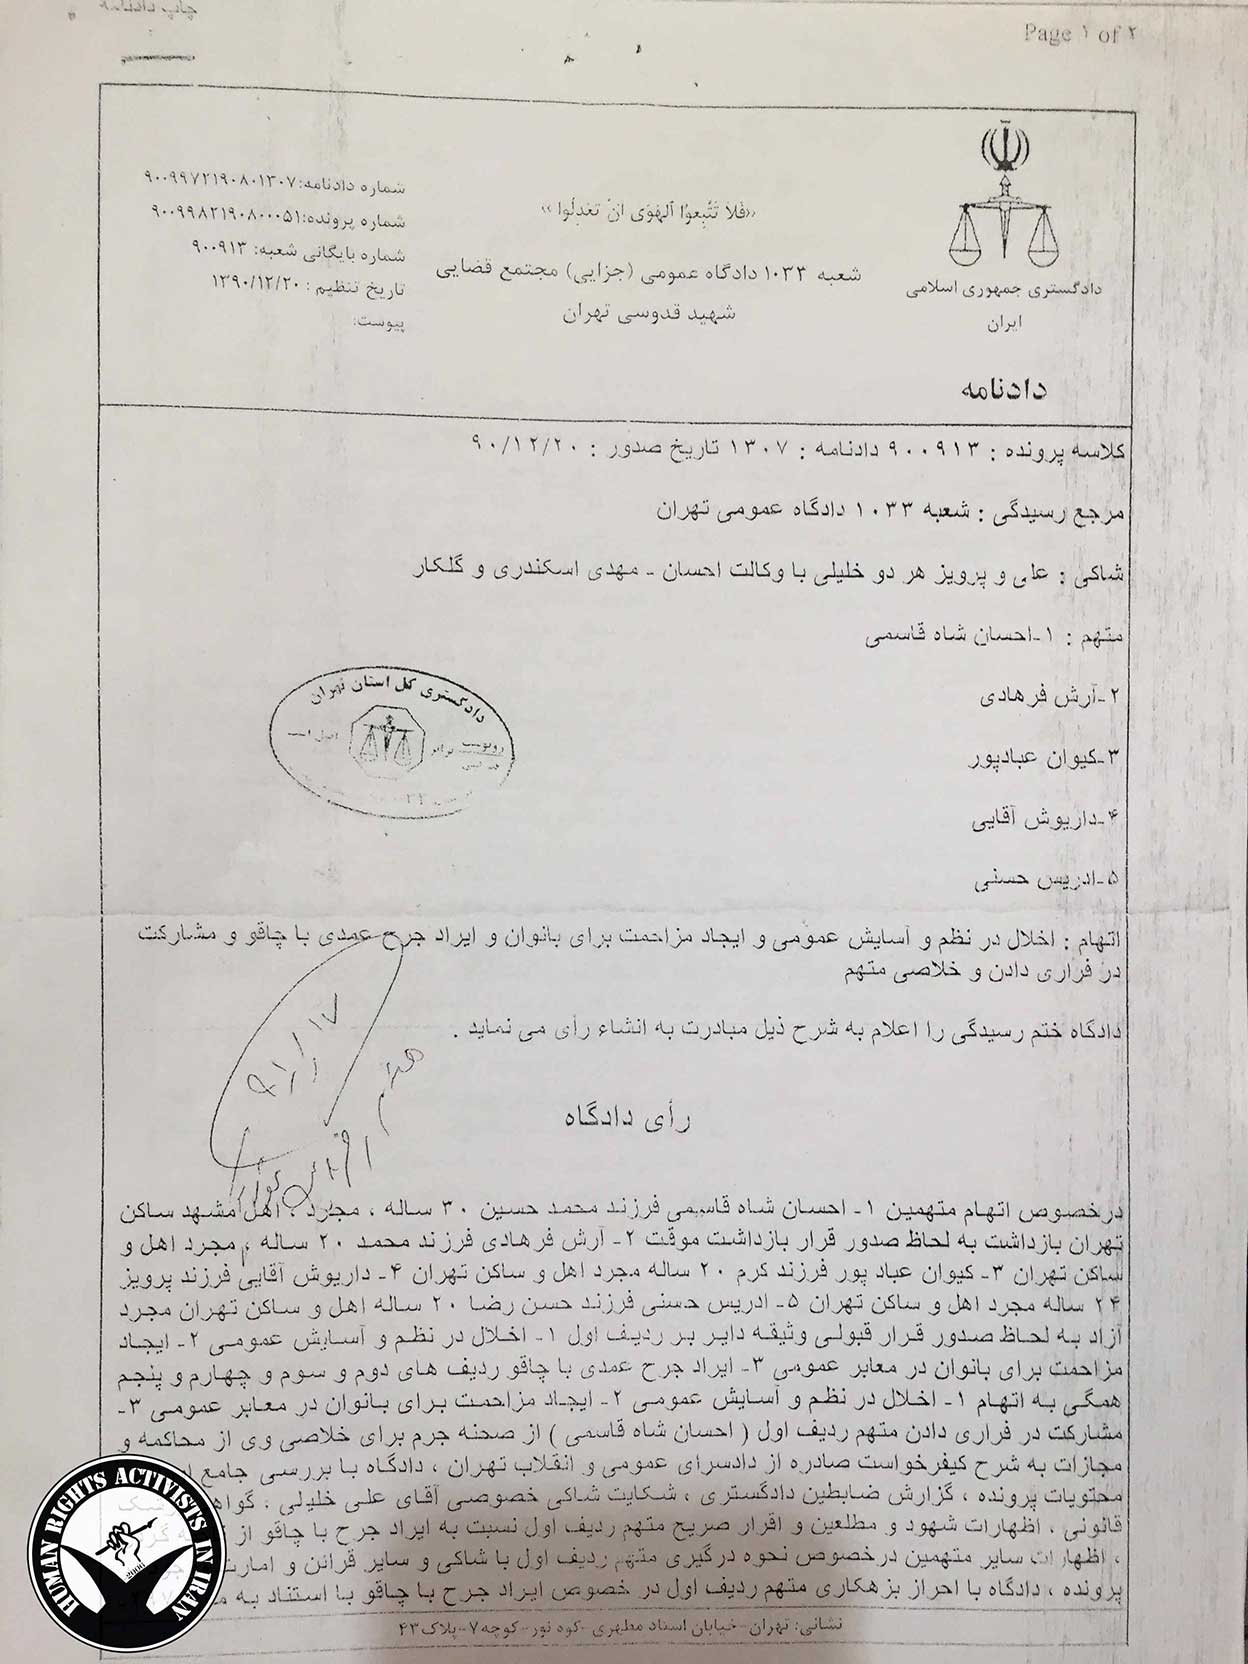 چاپ دادنامه
Page ۱ of ۲
دادگستری جمهوری اسلامی
ایران
«فَلا تَتَّبِعوُا الهَوَى اَنْ تَعدِلُوا»
شعبه ۱۰۳۳ دادگاه عمومی (جزایی) مجتمع قضایی
شهید قدوسی تهران
شماره دادنامه: ۹۰۰۹۹۷۲۱۹۰۸۰۱۳۰۷
شماره پرونده: ۹۰۰۹۹۸۲۱۹۰۸۰۰۰۵۱
شماره بایگانی شعبه: ۹۰۰۹۱۳
تاریخ تنظیم : ۱۳۹۰/۱۲/۲۰
پیوست:
دادنامه
کلاسه پرونده : ۹۰۰۹۱۳ دادنامه : ۱۳۰۷ تاریخ صدور : ۹۰/۱۲/۲۰
مرجع رسیدگی : شعبه ۱۰۳۳ دادگاه عمومی تهران
شاکی : علی و پرویز هر دو خلیلی با وکالت احسان - مهدی اسکندری و گلکار
متهم : ۱-احسان شاه قاسمی
۲-آرش فرهادی
۳-کیوان عبادپور
۴-داریوش آقایی
۵-ادریس حسنی
دادگستری کل استان تهران
رونوشت برابر اصل است
اتهام : اخلال در نظم و آسایش عمومی و ایجاد مزاحمت برای بانوان و ایراد جرح عمدی با چاقو و مشارکت
در فراری دادن و خلاصی متهم
دادگاه ختم رسیدگی را اعلام به شرح ذیل مبادرت به انشاء رأی می نماید .
۹۱/۱/۱۷
رأی دادگاه
درخصوص اتهام متهمین ۱- احسان شاه قاسمی فرزند محمد حسین ۳۰ ساله ، مجرد ، اهل مشهد ساکن
تهران بازداشت به لحاظ صدور قرار بازداشت موقت ۲- آرش فرهادی فرزند محمد ۲۰ ساله ، مجرد اهل و
ساکن تهران ۳- کیوان عباد پور فرزند کرم ۲۰ ساله مجرد اهل و ساکن تهران ۴- داریوش آقایی فرزند پرویز
۲۴ ساله مجرد اهل و ساکن تهران ۵- ادریس حسنی فرزند حسن رضا ۲۰ ساله اهل و ساکن تهران مجرد
آزاد به لحاظ صدور قرار قبولی وثیقه دایر بر ردیف اول ۱- اخلال در نظم و آسایش عمومی ۲- ایجاد
مزاحمت برای بانوان در معابر عمومی ۳- ایراد جرح عمدی با چاقو ردیف های دوم و سوم و چهارم و پنجم
همگی به اتهام ۱- اخلال در نظم و آسایش عمومی ۲- ایجاد مزاحمت برای بانوان در معابر عمومی ۳-
مشارکت در فراری دادن متهم ردیف اول ( احسان شاه قاسمی ) از صحنه جرم برای خلاصی وی از محاکمه و
مجازات به شرح کیفرخواست صادره از دادسرای عمومی و انقلاب تهران ، دادگاه با بررسی جامع
محتویات پرونده ، گزارش ضابطین دادگستری ، شکایت شاکی خصوصی آقای علی خلیلی ،
قانونی ، اظهارات شهود و مطلعین و اقرار صریح متهم ردیف اول نسبت به ایراد جرح با چاقو از
، اظهارات سایر متهمین درخصوص نحوه درگیری متهم ردیف اول با شاکی و سایر قرائن و
پرونده ، دادگاه با احراز بزهکاری متهم ردیف اول در خصوص ایراد جرح با چاقو با استناد به
نشانی: تهران-خیابان استاد مطهری-کوه نور-کوچه۷-پلاک۴۳
HUMAN RIGHTS ACTIVISTS IN IRAN
2006